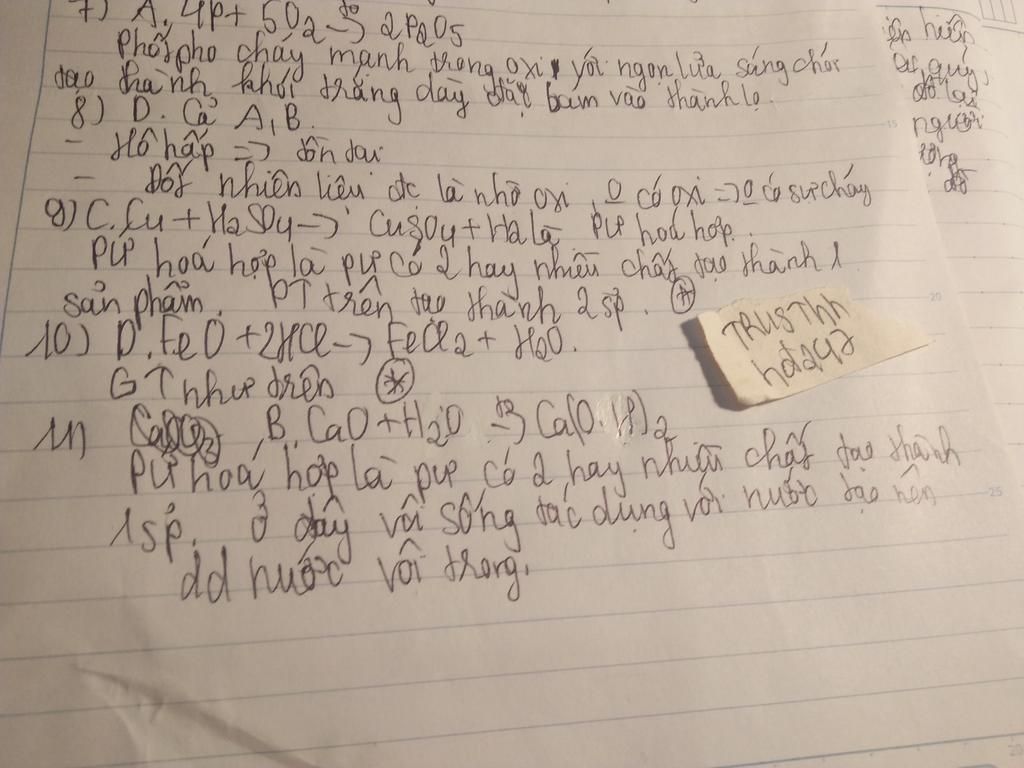 7) A. 4P + 5O2 -t0-> 2P2O5
Phốt pho cháy mạnh trong oxi, với ngọn lửa sáng chói
tạo thành khói trắng dày đặc bám vào thành lọ.
8) D. Cả A, B.
- Hô hấp => tồn tại
- Đốt nhiên liệu đc là nhờ oxi, o có oxi => o có sự cháy
9) C. Cu + H2SO4 -> CuSO4 + H2 là PƯ hoá hợp.
PƯ hoá hợp là pư có 2 hay nhiều chất tạo thành 1
sản phẩm. PT trên tạo thành 2 sp. (*)
10) D. FeO + 2HCl -> FeCl2 + H2O.
GT như trên (*)
11) B. CaO + H2O -t0-> Ca(OH)2
PƯ hoá hợp là pư có 2 hay nhiều chất tạo thành
1 sp. Ở đây vôi sống tác dụng với nước tạo nên
dd nước vôi trong.
TRUSTHh
hda2k2
hiến
quý,
đó lại
người